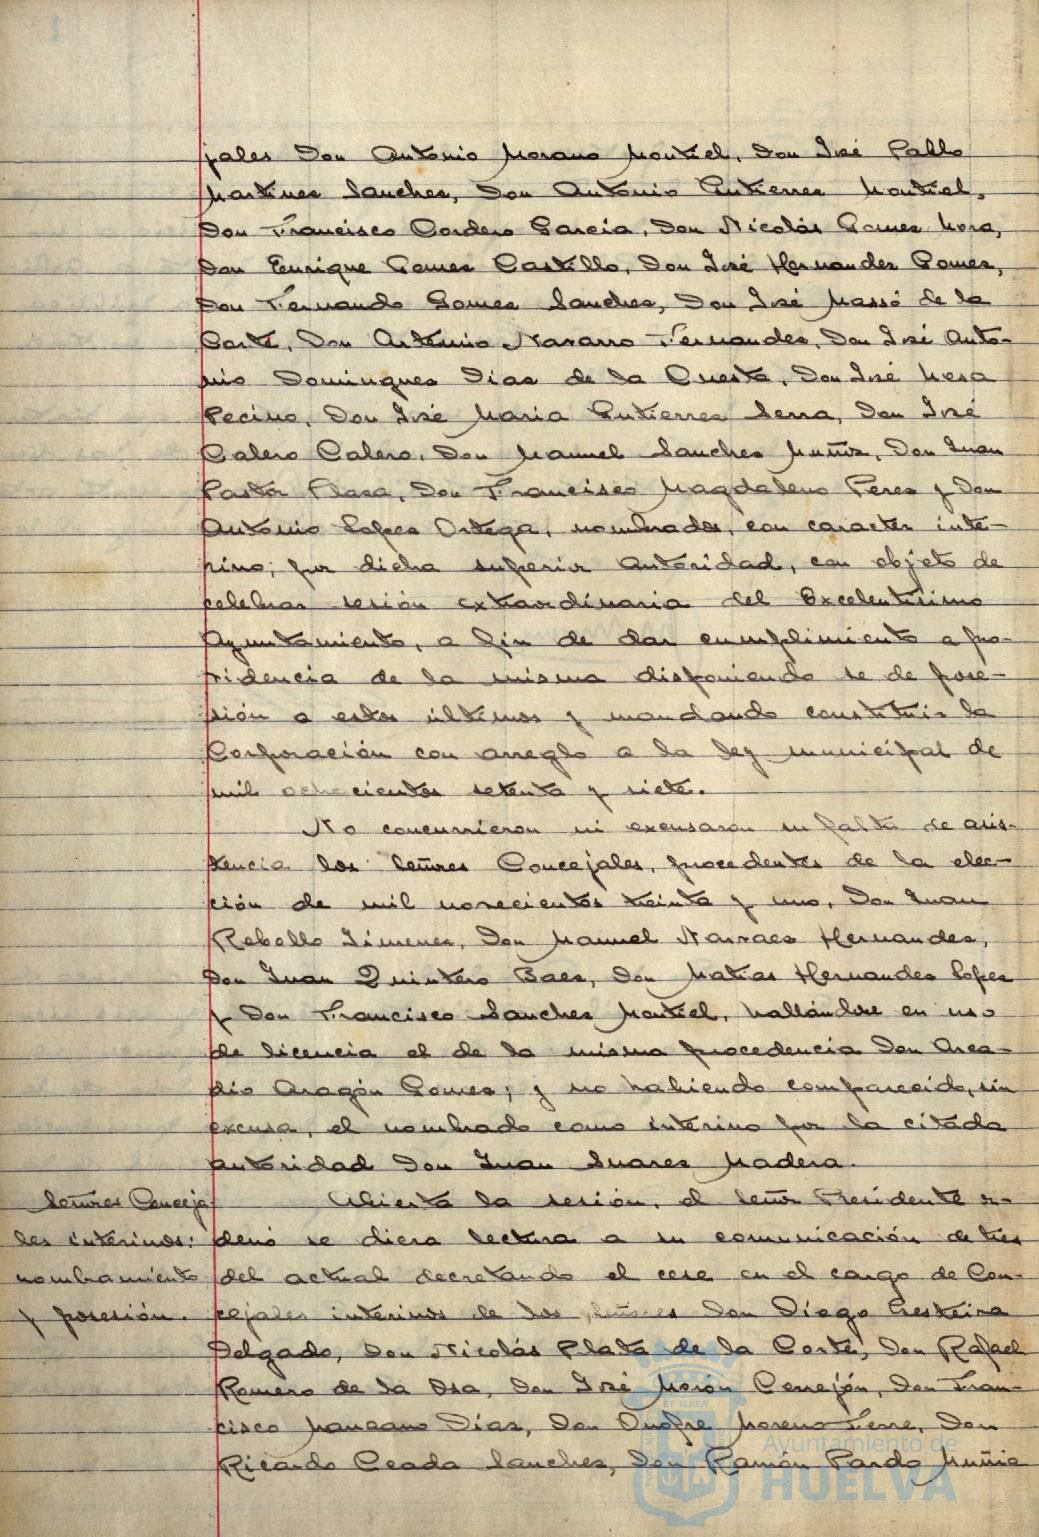 jales Don Antonio Morano Montiel, Don José Pablo
Martines Sanches, Don Antonio Gutierres Montiel,
Don Francisco Cordero Garcia, Don Nicolás Gomes Mora,
Don Enrique Gomes Castillo, Don José Hernandes Gomes,
Don Fernando Gomes Sanches, Don José Massó de la
Corte, Don Antonio Navarro Fernandes, Don José Anto-
nio Domingues Dias de la Cuesta, Don José Mesa
Pecino, Don José Maria Gutierres Serra, Don José
Calero Calero, Don Manuel Sanches Muñis, Don Juan
Pastor Plasa, Don Francisco Magdaleno Peres y Don
Antonio Lopes Ortega, nombrados, con caracter inte-
rino, por dicha superior autoridad, con objeto de
celebrar sesión extraordinaria del Excelentísimo
Ayuntamiento, a fin de dar cumplimiento a pro-
videncia de la misma disponiendo se de pose-
sión a estos ultimos y mandando constituir la
Corporación con arreglo a la ley municipal de
mil ochocientos setenta y siete.
No concurrieron ni excusaron su falta de asis-
tencia los Señores Concejales, procedentes de la elec-
ción de mil novecientos treinta y uno, Don Juan
Rebollo Jimenes, Don Manuel Narvaes Hernandes,
Don Juan Quintero Baes, Don Matias Hernandes Lopes
y Don Francisco Sanches Montiel, hallándose en uso
de licencia el de la misma procedencia Don Arca-
dio Aragón Gomes; y no habiendo comparecido, sin
excusa, el nombrado como interino por la citada
autoridad Don Juan Suares Madera.
Señores Conceja
les interinos:
nombramiento
y posesión.
Abierta la sesión, el Señor Presidente or-
denó se diera lectura a su comunicación de tres
del actual decretando el cese en el cargo de Con-
cejales interinos de los Señores Don Diego Gesteira
Delgado, Don Nicolás Plata de la Corte, Don Rafael
Romero de la Osa, Don José Morón Cerrejón, Don Fran-
cisco Mancano Dias, Don Onofre Moreno Ferre, Don
Ricardo Ceada Sanches, Don Ramón Pardo Muñis
Ayuntamiento de
HUELVA